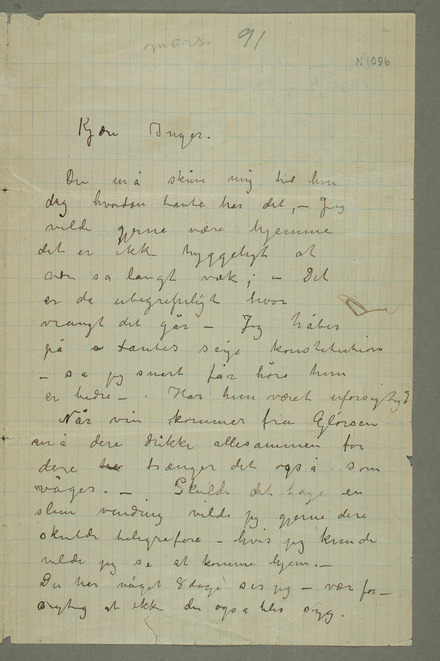 mars. 91
N 1096
Kjære Inger.
Du må skrive mig til hver
dag hvordan tante har det, – Jeg
vilde gjerne være hjemme
det er ikke hyggeligt at
være så langt væk; – Det
er da ubegripeligt hvor
vrangt det går – Jeg håber
på tantes seige konstitution
– så jeg snart får höre hun
er bedre – . Har hun været uforsigtig?
Når vin kommer fra Glörsen
må dere drikke allesammen for
dere trænger det også som
våger. – Skulde det tage en
slem vending vilde jeg gjerne dere
skulde telegrafere – hvis jeg kunde
vilde jeg se at komme hjem. –
Du har våget 8 dage ser jeg – vær for–
sigtig at ikke du også blir syg.